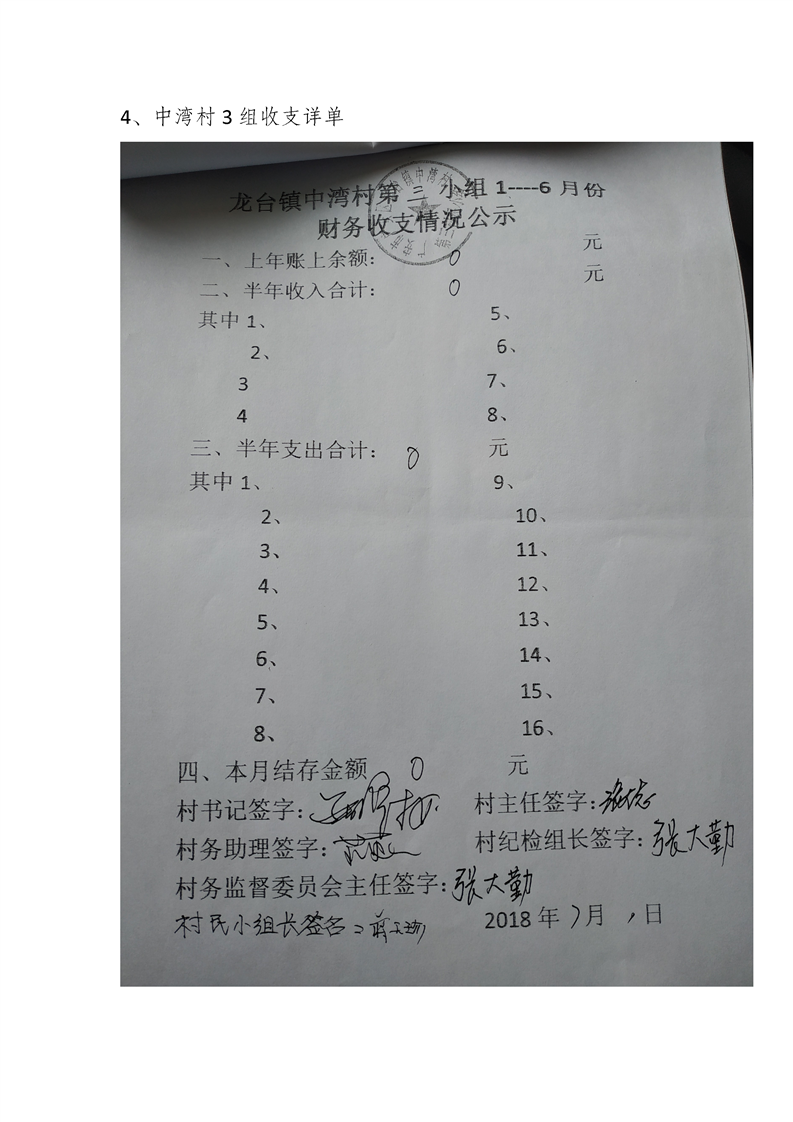 4、中湾村 3 组收支详单
龙台镇中湾村第 三 小组 1----6 月份
财务收支情况公示
一、上年账上余额: 0 元
二、半年收入合计: 0 元
其中 1、 5、
2、 6、
3 7、
4 8、
三、半年支出合计: 0 元
其中 1、 9、
2、 10、
3、 11、
4、 12、
5、 13、
6、 14、
7、 15、
8、 16、
四、本月结存金额 0 元
村书记签字: 村主任签字:
村务助理签字: 村纪检组长签字: 张大勤
村务监督委员会主任签字: 张大勤
村民小组长签名: 2018 年 7 月 日